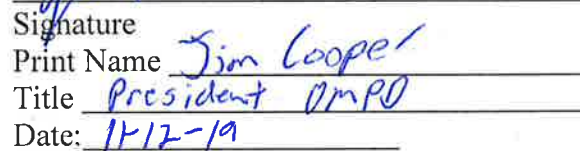 Signature
Print Name Jim Cooper
Title President OMPD
Date: 11-12-19